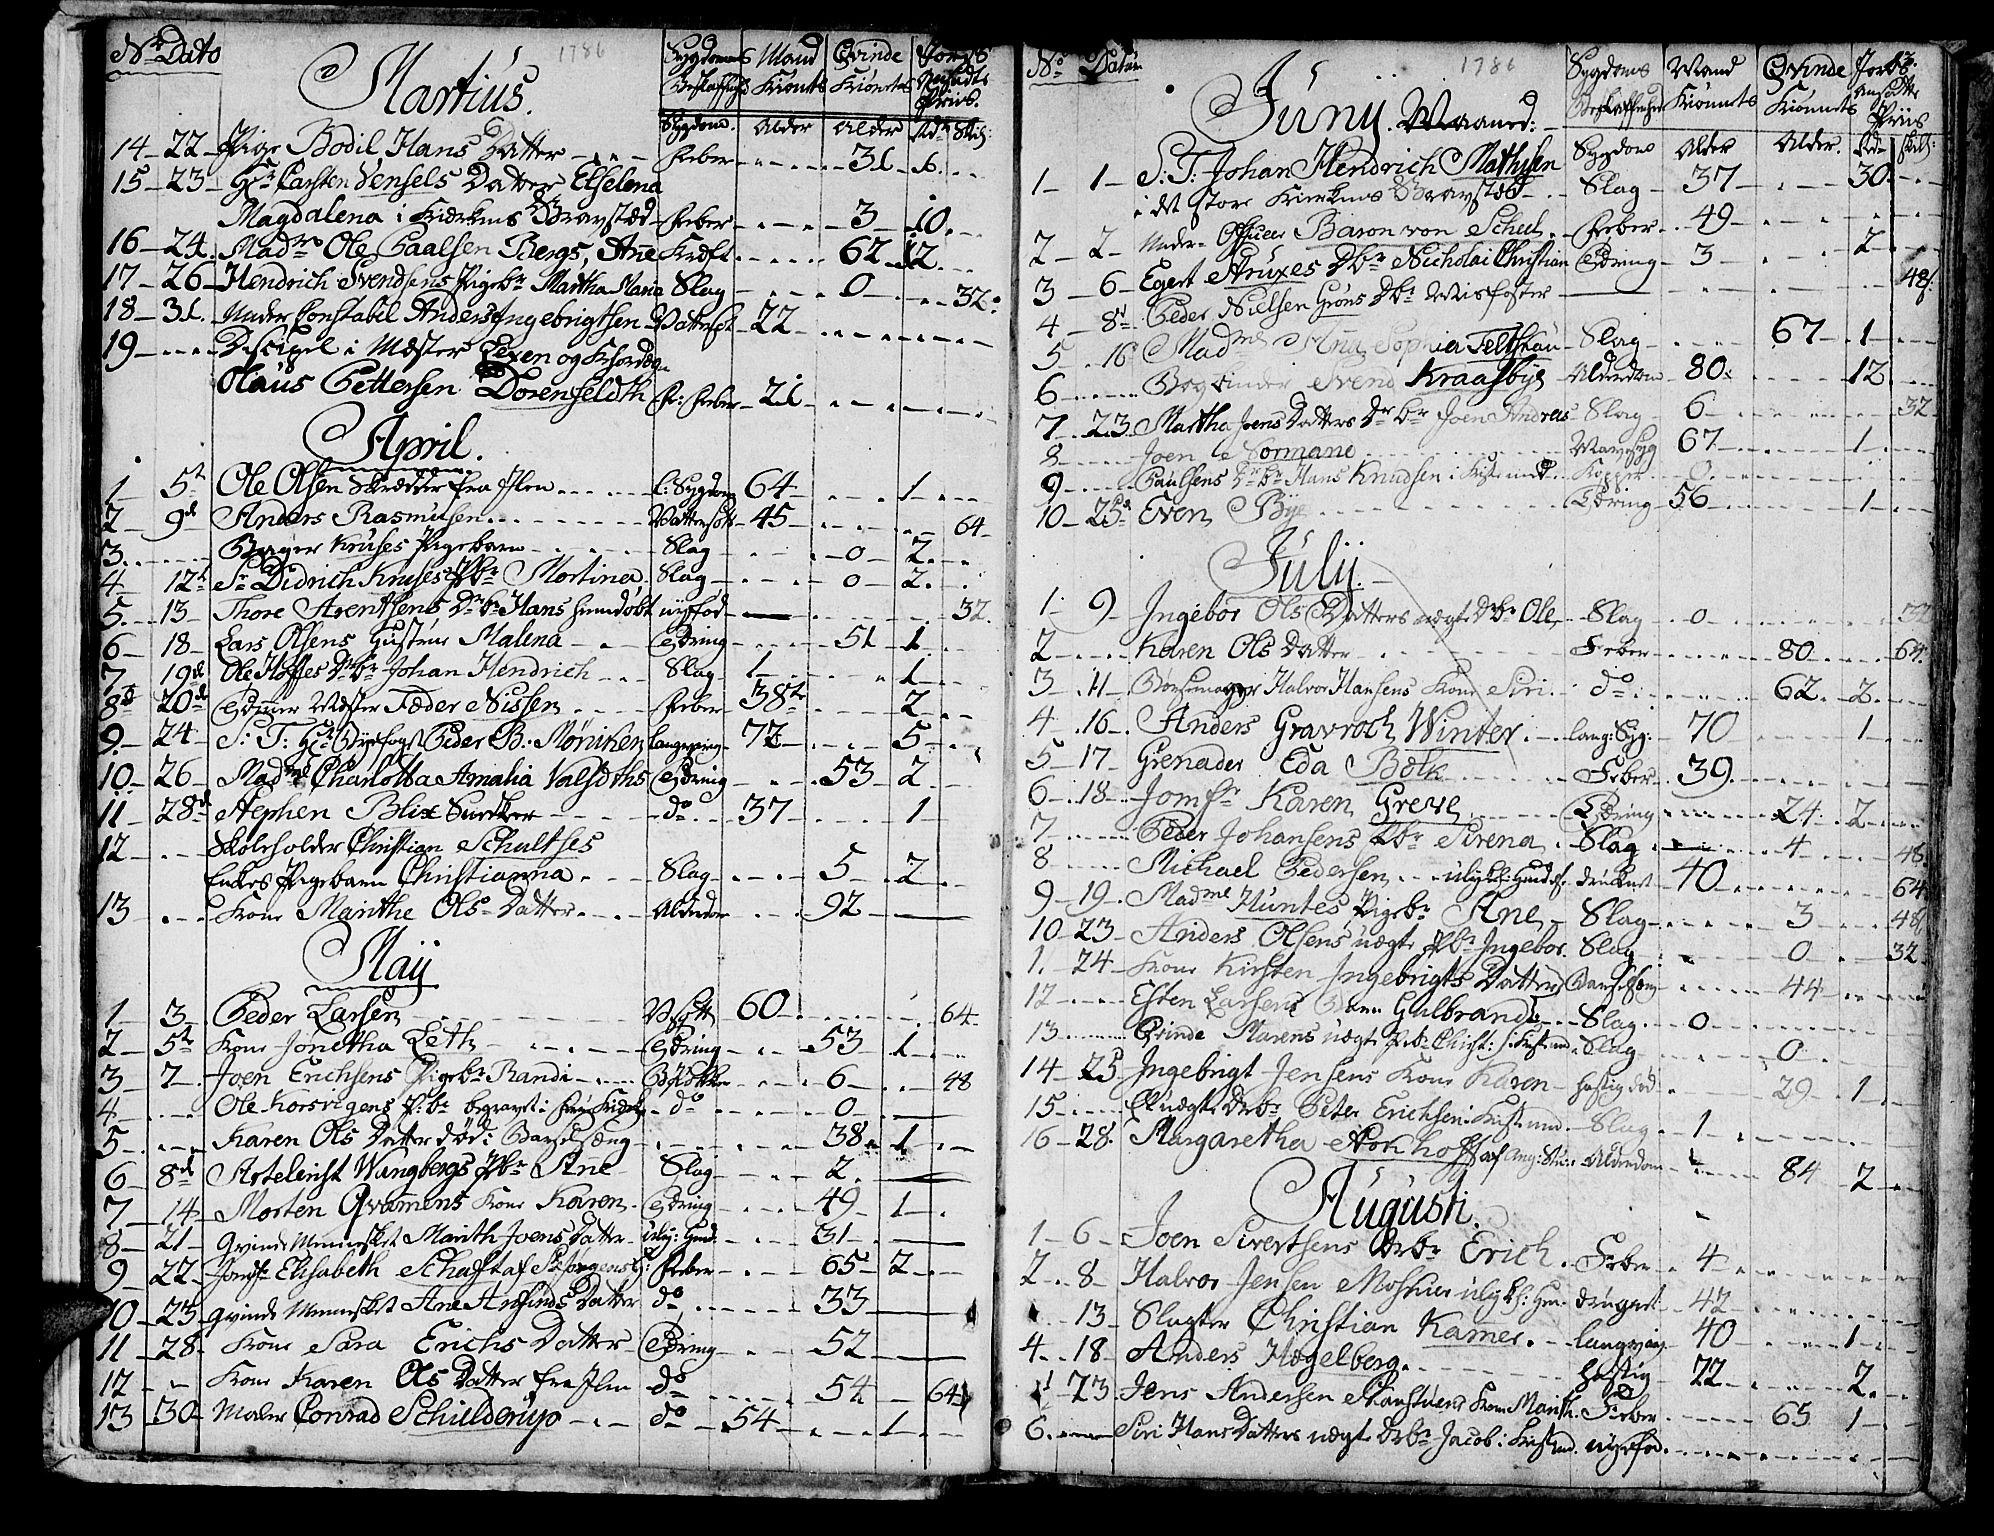 No Dato Martius. 1786 Sygdommens Beskaffenhed Mand Kiønnets Qvinde Kiønnets Jords Ansadte Priis.
Sygdom. Alder Alder Rdr Skil:
14 22 Pige Bodil Hans Datter Feber 31 6
15 23 Hr Carsten Vensels Datter Elselena
Magdalena i Kierkens Gravsted Feber 3 10
16 24 Madme Ole Paalsen Bergs, Ane Kræft 62 12
17 26 Hendrich Svendsens Pigebr Martha Maria Slag 0 32
18 31 Under Constabel Anders Ingebrigtsen Vattersot 22
19 Discipel i Mester Lexen og
Olaus Pettersen Dorenfeldth Feber 21
April.
1 5t Ole Olsen Skrædder fra Ilen l: Sygdom 64 1
2 9d Anders Rasmusen Vattersot 45 64
3 Bager Kruses Pigebarn Slag 0 2
4 12t Sr Didrich Kruses Pbr Martina Slag 0 2
5 13 Thore Arentsens Drbr Hans hiemdøbt nyfød 32
6 18 Lars Olsens Hustrue Malena Tæring 51 1
7 19d Ole Hoffes Drbr Johan Hendrich Slag 1 1
8d 20d Tømmer Mester Fæder Nissen Feber 38 2
9 24 S: T: Hr Byefoget Peder B: Mønichen langvarig 72 5
10 26 Madme Charlotta Amalia Valsøths Tæring 53 2
11 28d Stephen Blix Snedker do 37 1
12 Skoleholder Christian Schultses
Enkes Pigebarn Christianna Slag 5 2
13 Kone Marithe Ols Datter Alderdom 92
Maij
1 3 Peder Larsen 60 64
2 5t Kone Jonetha Leth Tæring 53 1
3 7 Joen Erichsens Pigebr Randi 6 48
4 Ole Korsvigens P: br begravet i do 0
5 Karen Ols Datter død i Barselseng 38 1
6 8d Artelerist Wangbergs Pbr Ane Slag 2
7 14 Morten Qvamens Kone Karen Tæring 49 1
8 21 Qvinde Mennesket Marith Joens Datter 31
9 22 Jomfr Elisabeth Schaft af St Jørgens Feber 65 2
10 23 Qvinde Mennesket Ane Arnfinds Datter do 33
11 28 Kone Sara Erichs Datter Tæring 52
12 Kone Karen Ols Datter fra Ilen do 54 64
13 30 Maler Conrad Schilderup do 54 1
No Datum Junij. Maaned: 1786 Sygdoms Beskaffenhed Mand Kiønnets Qvinde Kiønnets Jords Ansadte Priis
Sygdom Alder Alder. Rdr Skil:
1 1 S: T: Johan Hendrich Mathisen
i det store Kierkens Gravsted Slag 37 30
2 2 Under Officeer Baron von Scheel Feber 49
3 6 Egert Struxes Dbr Nicholai Christian Tæring 3 2
4 8d Peder Nielsen Grøns Dbr Misfoster 48
5 16 Madme Ana Sophia Feltskau Slag 67 1
6 Bogbinder Svend Kraasbye Alderdom 80 12
7 23 Martha Joens Datters Drbr Joen Andreas Slag 6 32
8 Joen Normand 67 1
9 Paulsens Drbr Hans Knudsen i Kopper 0
10 25d Even Bye Tæring 56 1
Julij.
1 9 Ingebor Ols Datters uægte Drbr Ole Slag 0 32
2 Karen Ols Datter Feber 80 64
3 11 Halvor Hansens Kone Siri do 62 2
4 16 Anders Gravroch Winter lang: Syg: 70 1
5 17 Grenader Eda Bolk Feber 39
6 18 Jomfr Karen Greve Tæring 24 2
7 Peder Johansens Pbr Sirena Slag 4 48
8 Michael Pedersen druknet 40 64
9 19 Madme Huntes Pigebr Ane Slag 3 48
10 23 Anders Olsens uægte Pbr Ingebor Slag 0 32
1. 24 Kone Kirsten Ingebrigts Datter Barselseng 44
12 Esten Larsens Barn Gulbrand Slag 0
13 Qvinde Marens uægte Pbr Christ: Slag 0
14 25 Ingebrigt Jensens Kone Karen hastig død 29 1
15 uægte Drbr Peter Erichsen Slag 1
16 28 Margaretha Nordhoff af Alderdom 84 2
Augusti.
1 6 Joen Sivertsens Drbr Erich Feber 4
2 8 Halvor Jensen druknet 42
13 Slagter Christian Kamer langvarig 40 1
4 18 Anders Hægelberg hastig 22 2
23 Jens Andersen Kone Marith Feber 65 1
6 Siri Hans Datters uægte Drbr Jacob nyefød